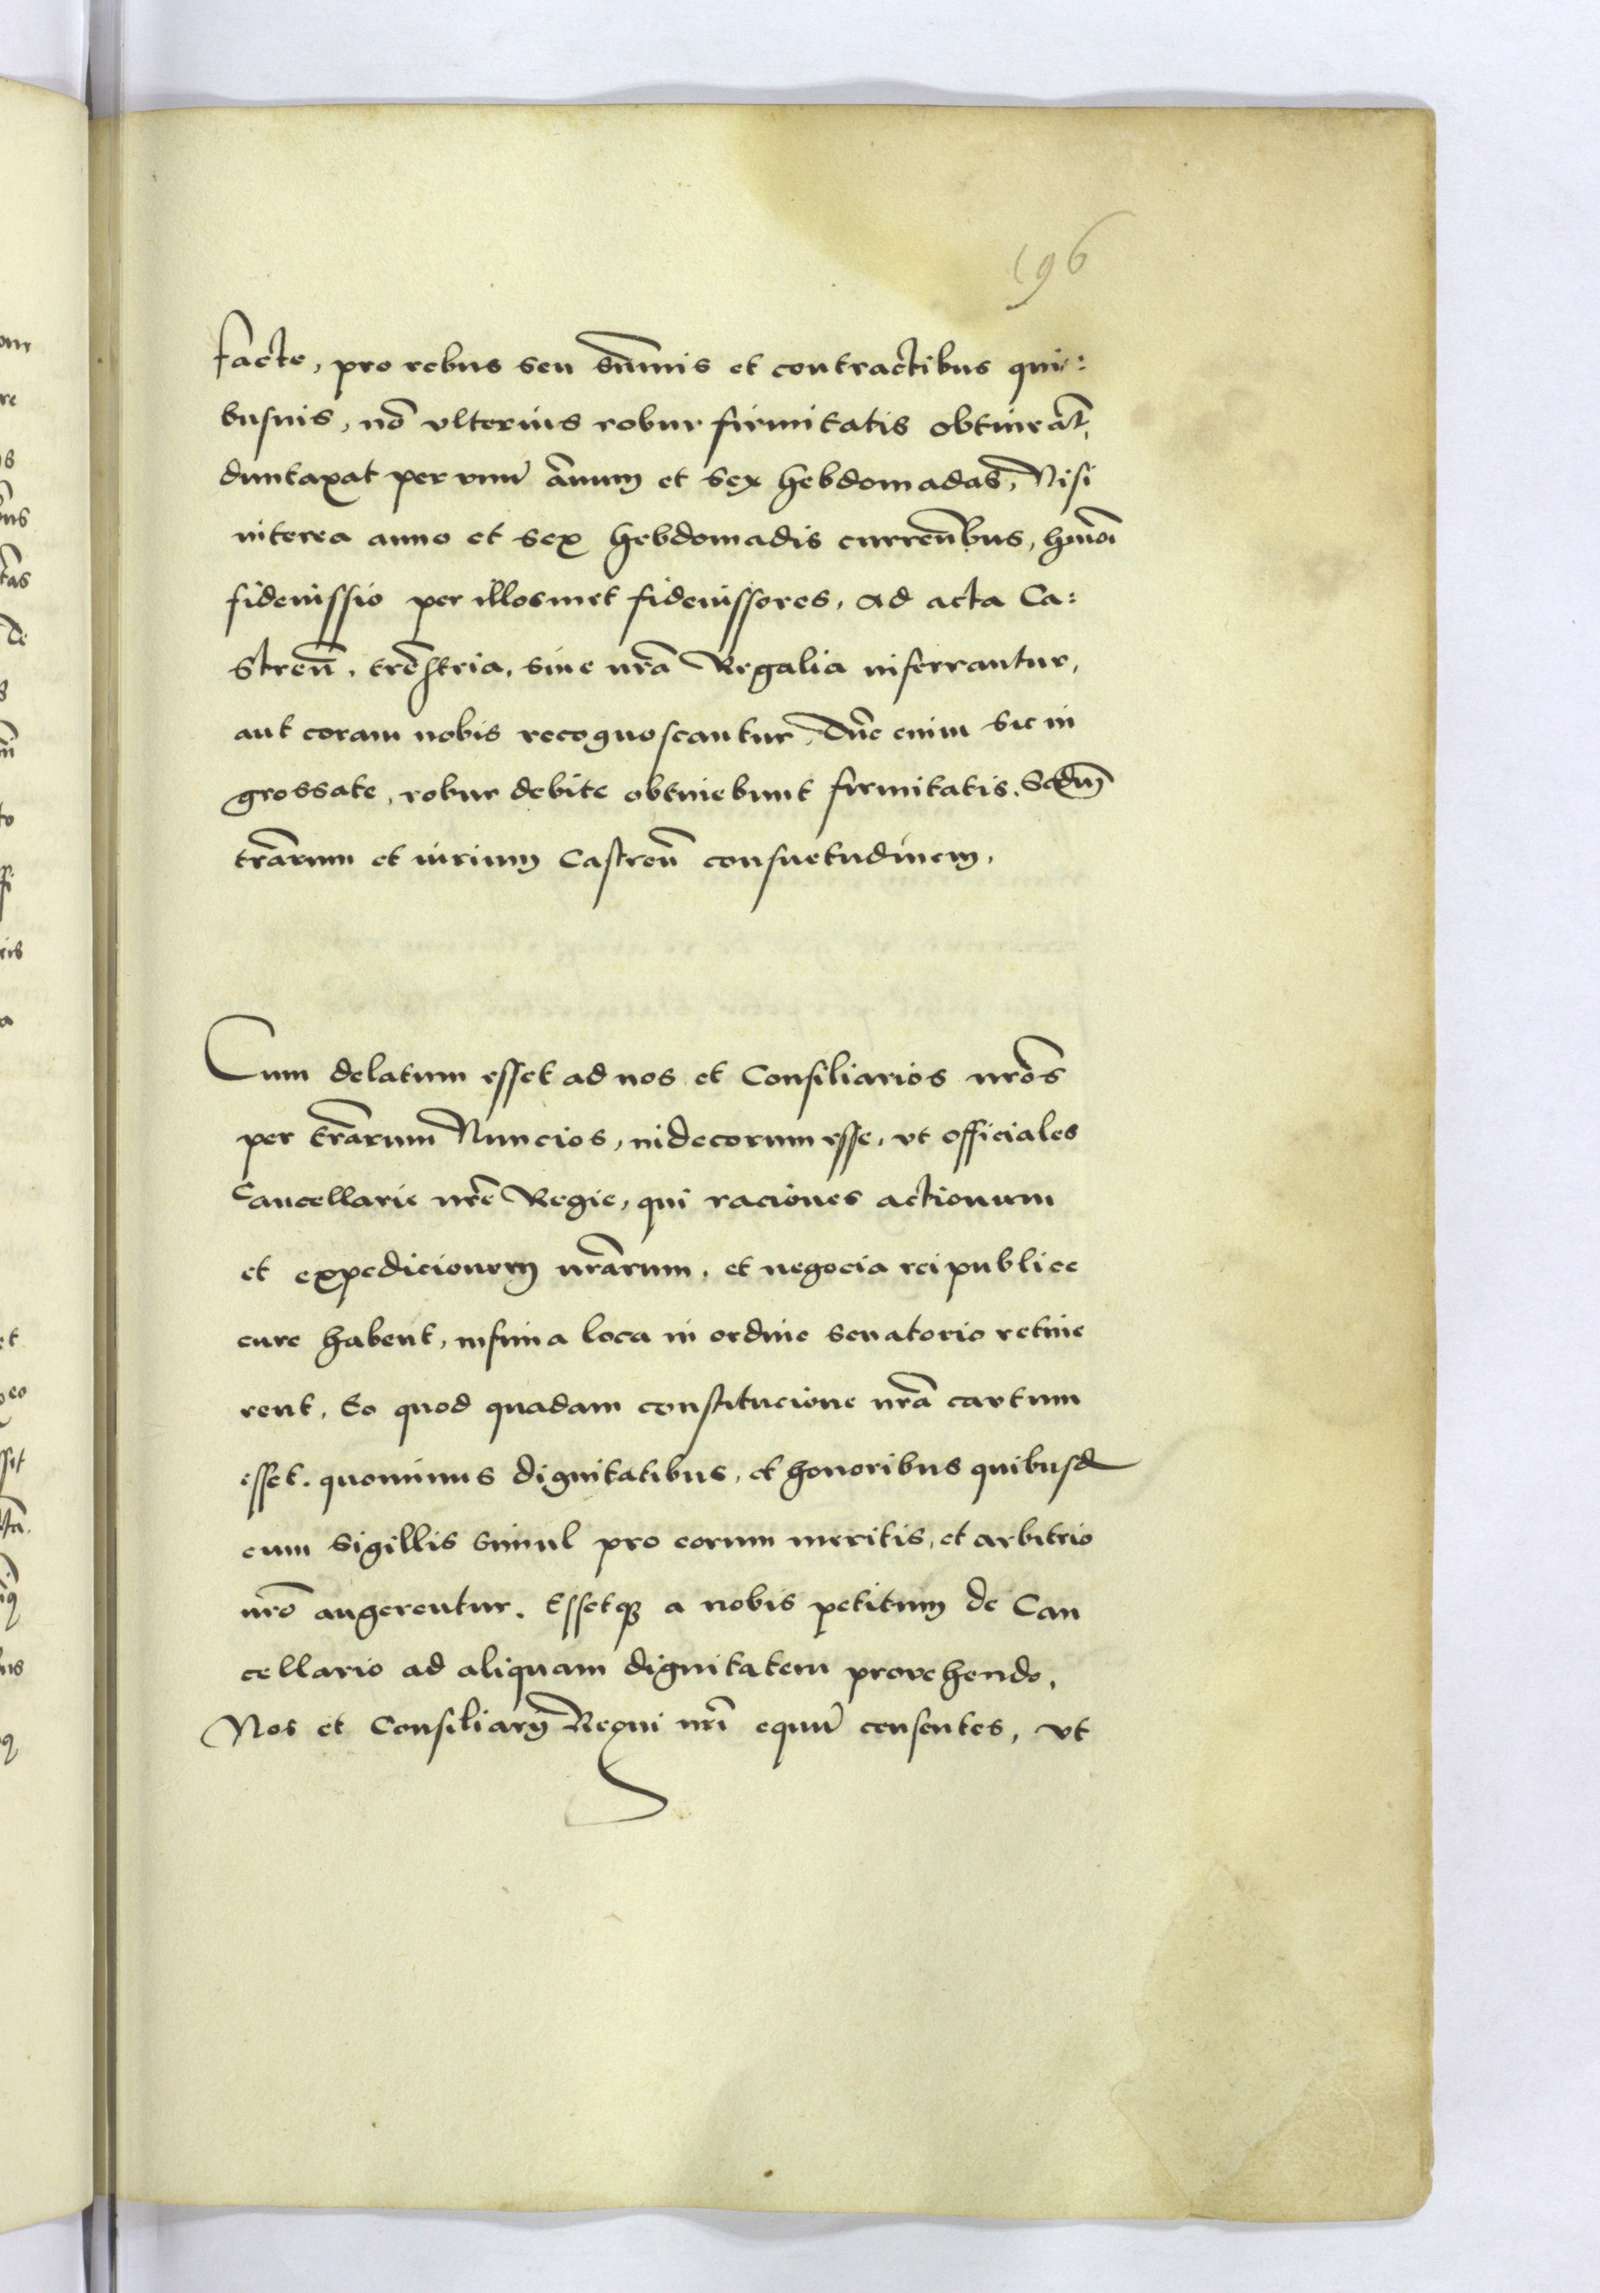 196
facte, pro rebus seu sum̄mis et contractibus qui:
busuis, nō vlterius robur firmitatis obtineāt,
duntaxat per vnū ānum et sex hebdomadas, Nisi
interea anno et sex hebdomadis currentibus, hmōi
fideiussio per illosmet fideiussores, ad acta Ca:
stren̄, trēstria, siue nrā Regalia inferrantur,
aut coram nobis recognoscantur, Tūc enim sic in
grossate, robur debite obtinebunt firmitatis. Scdm̄
trārum et iurium Castren̄ consuetudinem.
Cum delatum esset ad nos et Consiliarios nrōs
per trārum Nuncios, indecorum esse, vt officiales
Cancellarie nrē Regie, qui raciones actionum
et expedicionem nrārum, et negocia rei publice
cure habent, infima loca in ordine senatorio retine
rent, Eo quod quadam constitucione nrā cautum
esset. quominus dignitatibus, et honoribus quibusd
cum sigillis simul pro eorum meritis, et arbitrio
nrō augerentur. Essetqꝫ a nobis petitum de Can
cellario ad aliquam dignitatem prouehendo,
Nos et Consiliarij Regni nrī equū censentes, vt